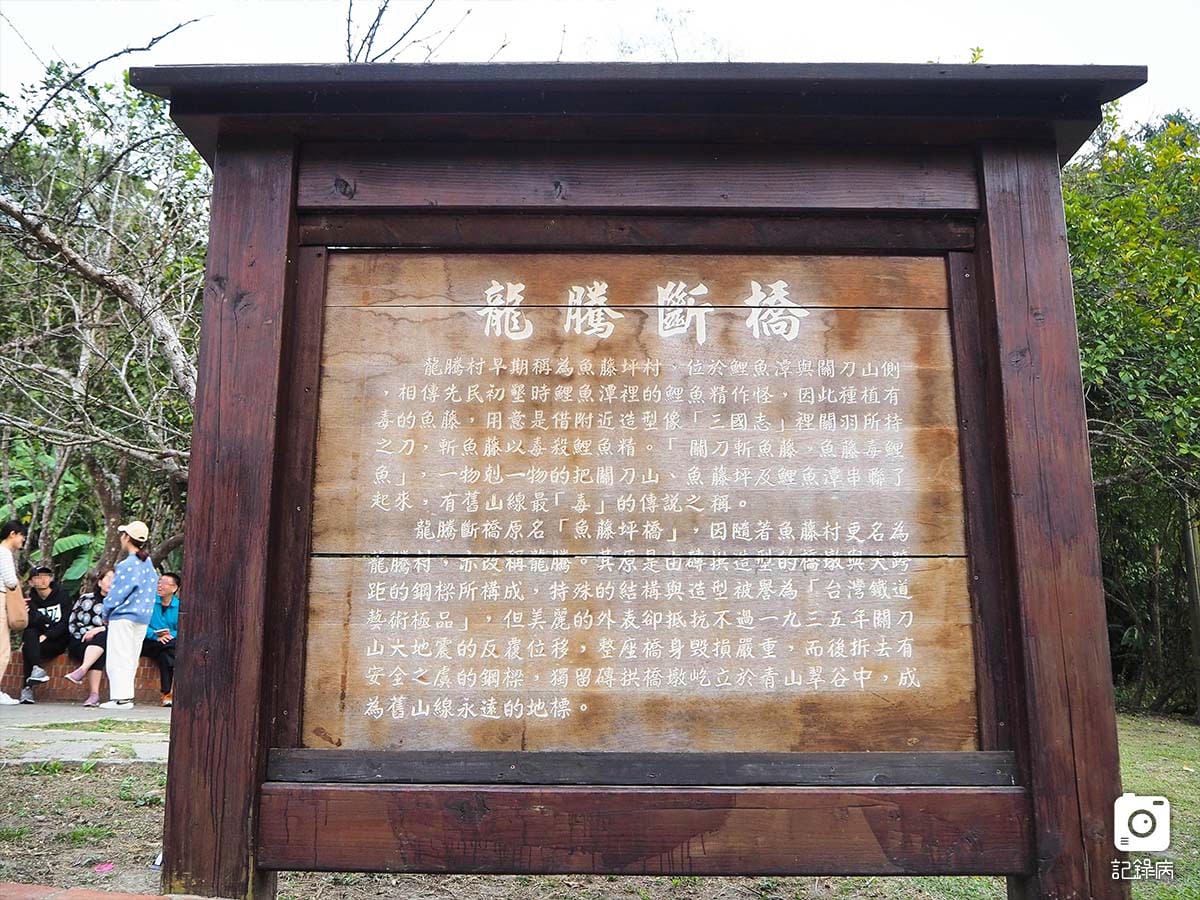 龍騰斷橋
龍騰村早期稱為魚藤坪村，位於鯉魚潭與關刀山側
，相傳先民初墾時鯉魚潭裡的鯉魚精作怪，因此種植有
毒的魚藤，用意是借附近造型像「三國志」裡關羽所持
之刀，斬魚藤以毒殺鯉魚精。「關刀斬魚藤，魚藤毒鯉
魚」，一物剋一物的把關刀山、魚藤坪及鯉魚潭串聯了
起來，有舊山線最「毒」的傳說之稱。
龍騰斷橋原名「魚藤坪橋」，因隨著魚藤村更名為
龍騰村，亦改稱龍騰。其原是由磚拱造型的橋墩與大跨
距的鋼樑所構成，特殊的結構與造型被譽為「台灣鐵道
藝術極品」，但美麗的外表卻抵抗不過一九三五年關刀
山大地震的反覆位移，整座橋身毀損嚴重，而後拆去有
安全之虞的鋼樑，獨留磚拱橋墩屹立於青山翠谷中，成
為舊山線永遠的地標。
記錄病